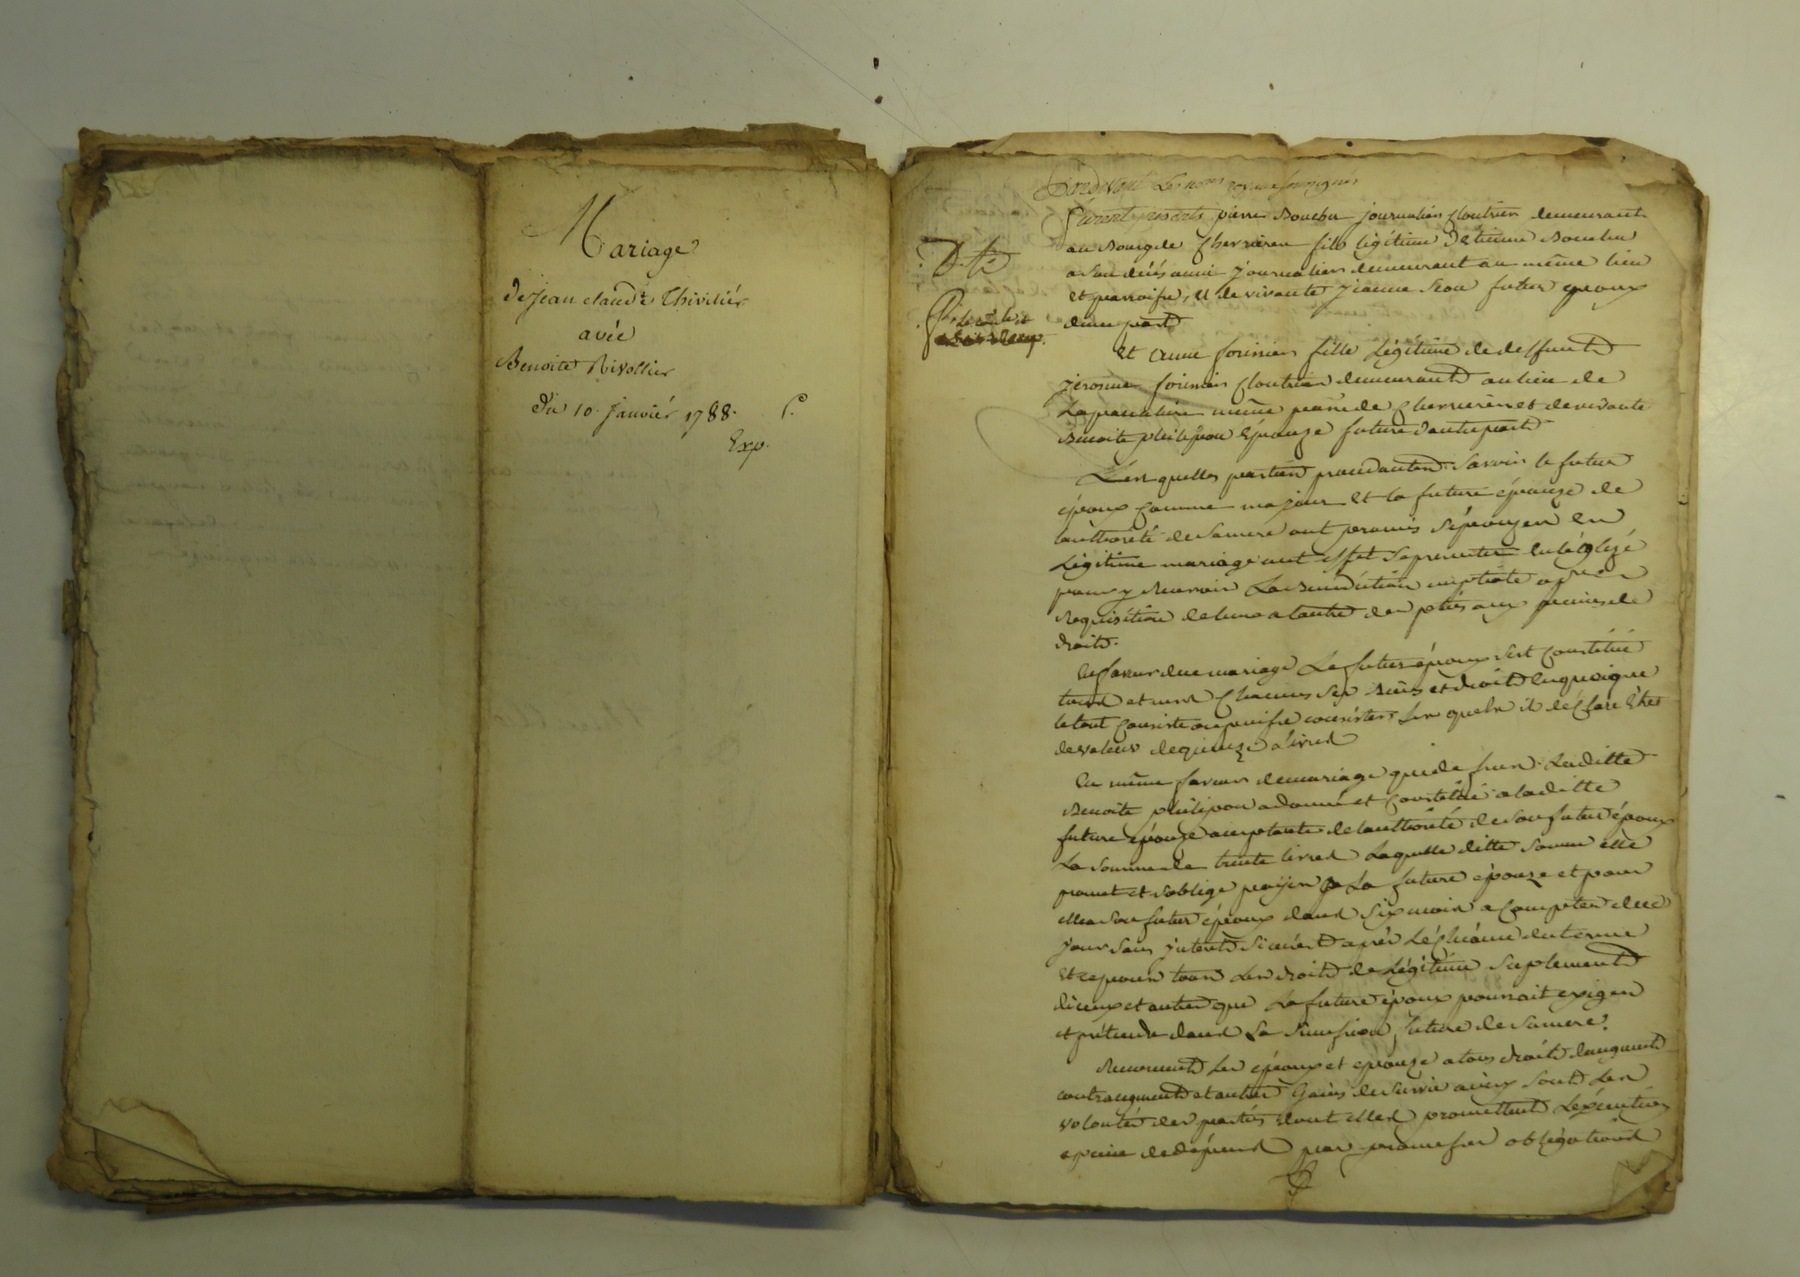 Mariage
de Jean claude Thivilier
avec
Benoite Rivollier
du 10 Janvier 1788.
Exp.
Pardevant Les no.res royaux soussignés
furent presents pierre Boucher journalier cloutrier demeurant
au Bourg de Chevrieres fils légitime d'etienne Boucher
a son décés aussi journalier demeurant au même lieu
et parroisse, et de vivante jeanne futur epoux
d'une part
et anne fournier fille légitime de deffunt
jerosme fournier cloutrier demeurant au lieu de
même par.sse de Chevrieres et de vivante
Benoite philipon épouze future d'autre part
Lesquelles parties procedantes savoir le futur
époux comme majeur et la future épouze de
lauthorité de sa mere ont promis s'épouzer en
Légitime mariage a cet effet se presenter en léglize
pour y recevoir La Benediction nuptiale a p.re
requisition de lune a lautre des p.ties aux peines de
droit.
En faveur du mariage Le futur époux sest constitué
tous et uns chacuns ses Biens et droits en quoi que
le tout consiste ou puisse consister, lesquels il déclare être
de valeur de quinze livres
En même faveur de mariage que de sus Laditte
Benoite philipon a donné et constitué a laditte
future épouze acceptante de lauthorité de son futur époux
La somme de trente livres Laquelle ditte somme elle
promet et soblige payer a La future épouze et pour
elle a son futur époux dans six mois a compter de ce
jour sans interest si ce n'est après Léchéance du terme
et ce pour tous Les droits de Légitime suplement
diceux et autre que La future époux pourroit exiger
et prétendre dans La succession future de sa mere.
Renoncent Les époux et epouze a tous droits daugment
contraugment et autres Gains de survie ainsy sont Les
volontés des parties dont elles promettent Lexécution
a peine de dépens par promesses obligations